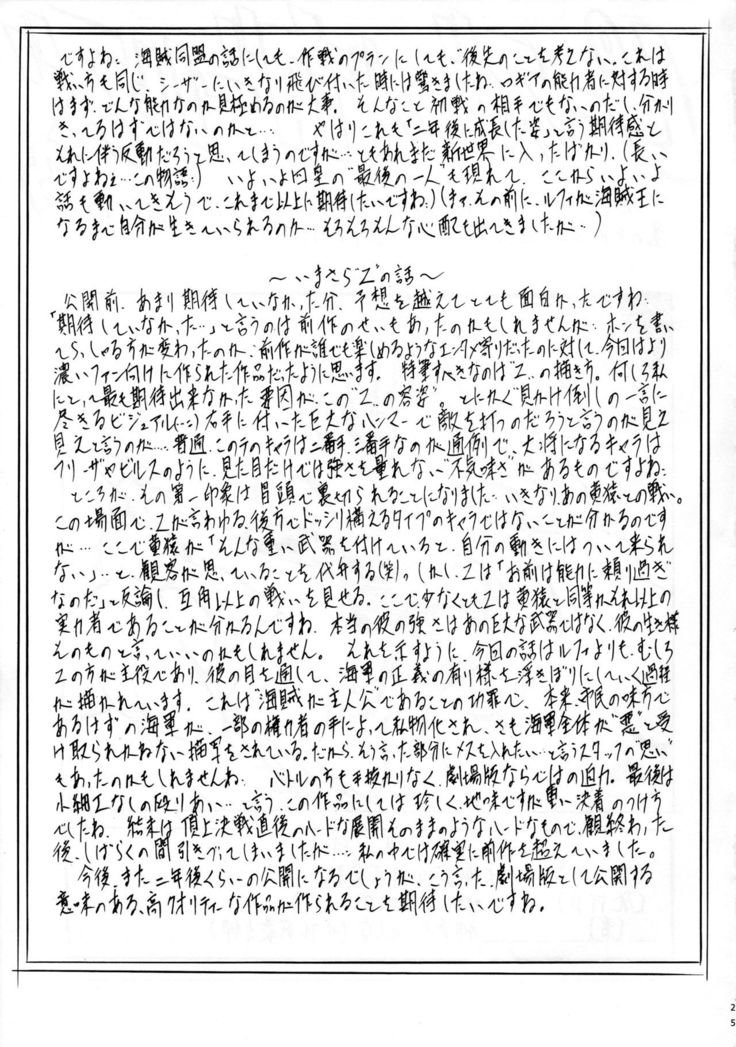 ですよね； 海賊同盟の話にしても、作戦のプランにしても、後先のことを考えない。これは
戦い方も同じ、シーザーにいきなり飛び付いた時には驚きましたね。ロギアの能力者に対する時
はまず、どんな能力なのか見極めるのが大事。 そんなこと初戦の相手でもないのだし、分かり
きってるはずではないのかと… やはりこれも「二年後に成長した姿」と言う期待感と
それに伴う反動だろうと思ってしまうのですが…ともあれまだ新世界に入ったばかり。(長い
ですよねェ…この物語；) いよいよ四皇の“最後の一人”も現れて、ここからいよいよ
話も動いてきそうで、これまで以上に期待したいですね；(まァ、その前に、ルフィが海賊王に
なるまで自分が生きていられるのか… そろそろそんな心配も出てきましたが…)
～いまさら“Z”の話～
公開前、あまり期待していなかった分、予想を越えてとても面白かったですね；
「期待していなかった…」と言うのは前作のせいもあったのかもしれませんが…ホンを書い
てらっしゃる方が変わったのか、前作が誰でも楽しめるようなエンタメ寄りだったのに対して、今回はより
濃いファン向けに作られた作品だったように思います。 特筆すべきなのは“Z”の描き方。何しろ私
にとって最も期待出来なかった要因が、この“Zの容姿”。とにかく“見かけ倒し”の一言に
尽きるビジュアル(--；)右手に付いた巨大なハンマーで敵を打つのだろうと言うのが見え
見えと言うのが…普通、このテのキャラは二番手、三番手なのが通例で、大将になるキャラは
フリーザやセルスのように、見た目だけでは強さを量れない“不気味さ”があるものですよね；
ところが、その第一印象は冒頭で裏切られることになりました…いきなり、あの黄猿との戦い。
この場面で、Zが言わゆる、後方でドッシリ構えるタイプのキャラではないことが分かるのです
が… ここで黄猿が「そんな重い武器を付けていると、自分の動きにはついて来られ
ない」…と、観客が思っていることを代弁する(笑)。しかし、Zは「お前は能力に頼り過ぎ
なのだ」と反論し、互角以上の戦いを見せる。ここで、少なくともZは黄猿と同等かそれ以上の
実力者であることが分かるんですね。本当の彼の強さはあの巨大な武器ではなく、彼の生き様
そのものと言っていいのかもしれません。 それを示すように、今回の話はルフィよりも、むしろ
Zの方が主役であり、彼の目を通して、海軍の正義の有り様を浮きぼりにしていく過程
が描かれています。 これは“海賊が主人公”であることの功罪で、本来、市民の味方で
あるはずの海軍が、一部の権力者の手によって私物化され、さも海軍全体が“悪”と受
け取られかねない描写をされている。だから、そう言った部分にメスを入れたい…と言うスタッフの“思い”
もあったのかもしれませんね； バトルの方も手抜かりなく、劇場版ならではの迫力。最後は
小細工なしの殴りあい…と言う、この作品にしては珍しく、地味ですが重い決着のつけ方
でしたね。 結末は頂上決戦直後のハードな展開そのままのようなハードなもので、観終わった
後、しばらくの間引きづってしまいましたが…；私の中では確実に前作を超えていました。
今後、また二年後くらいの公開になるでしょうが、こう言った、劇場版として公開する
意味のある、高クオリティーな作品が作られることを期待したいですね。
25